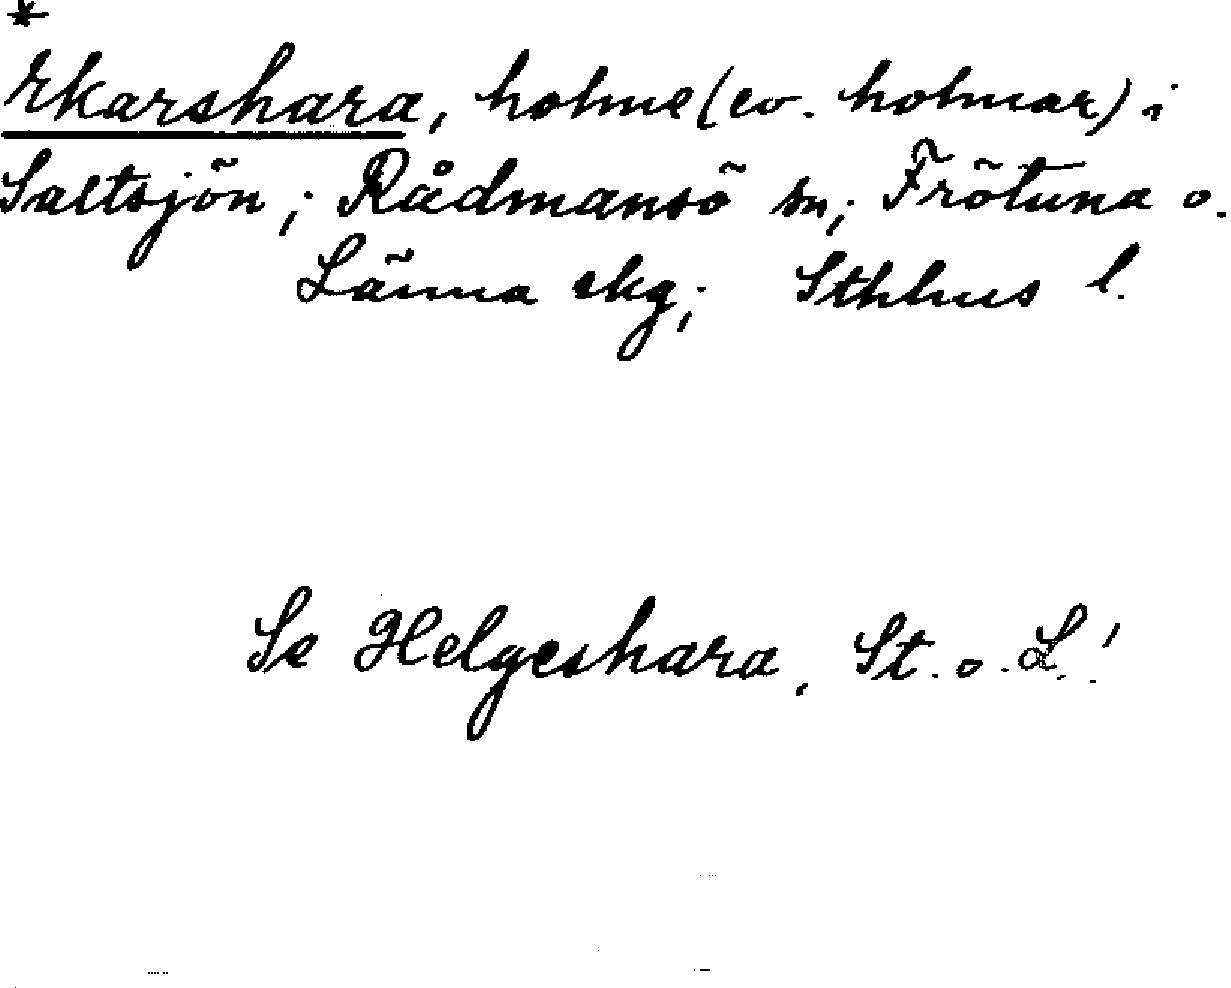 *
Ekarshara, holme (ev. holmar) i
Saltsjön; Rådmansö sn; Frötuna o.
Länna skg; Sthlms l.
Se Helgeshara, St. o. L.!